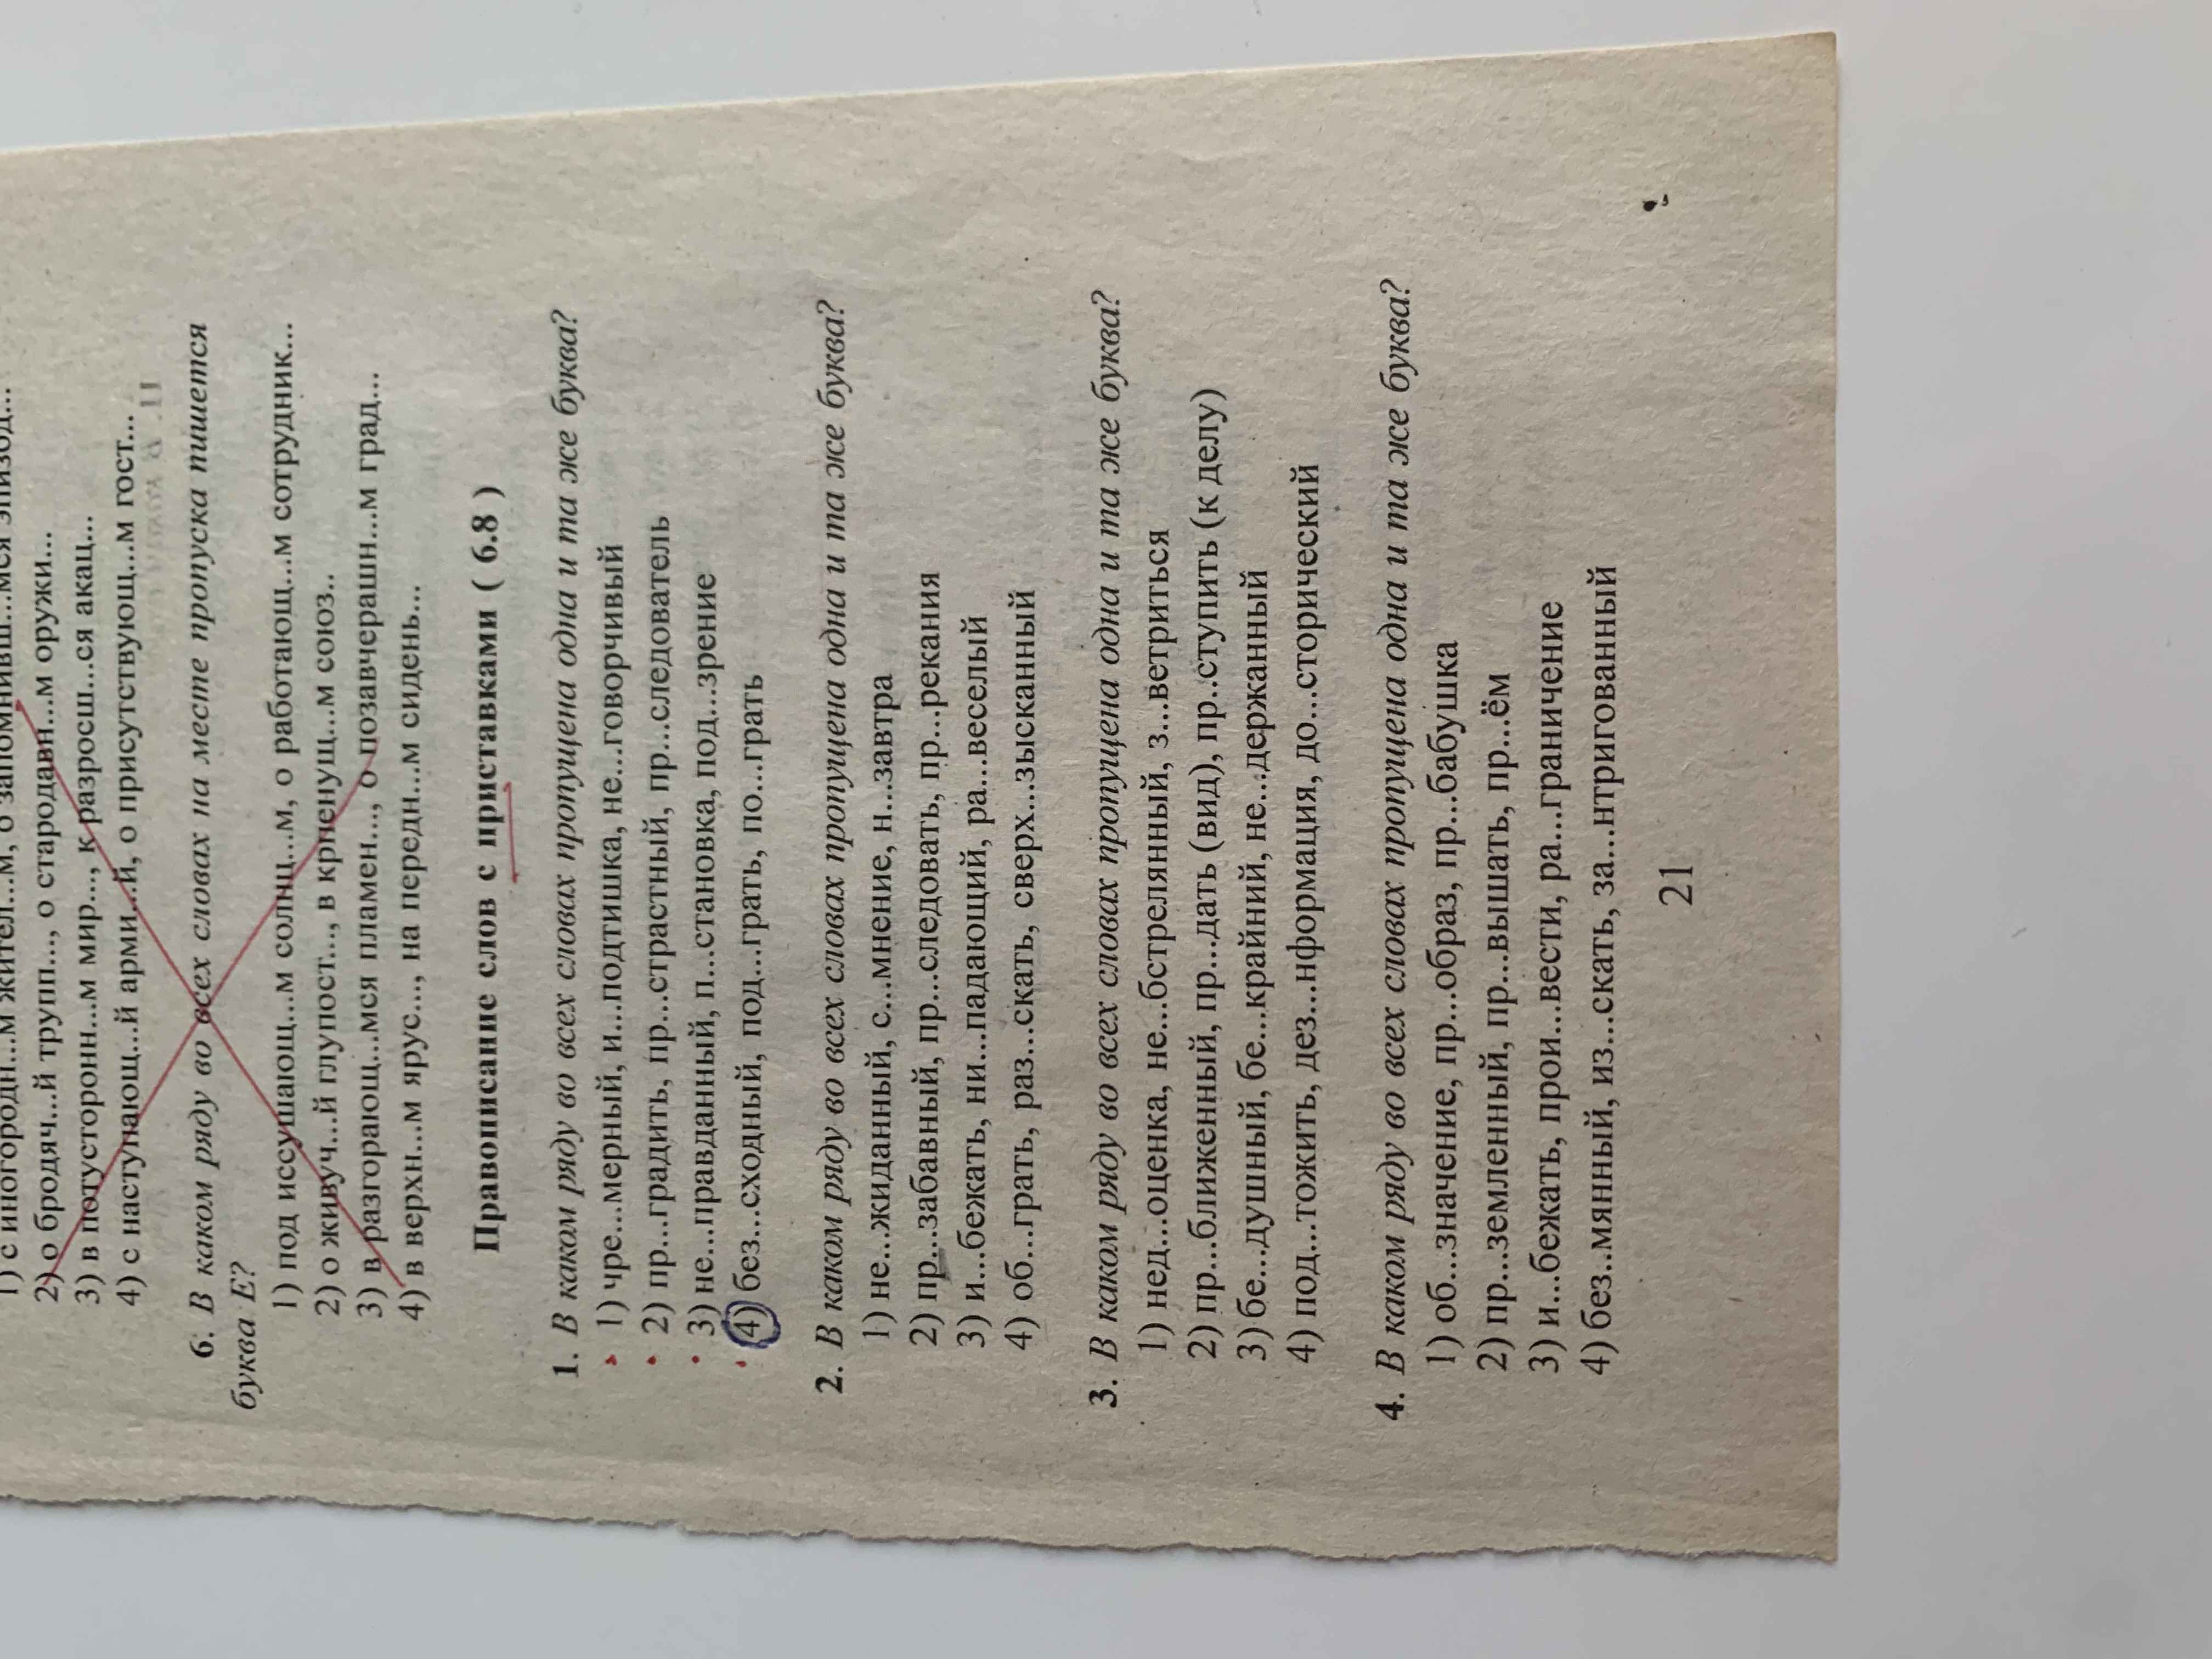 1) с инородн...м жител...м, о запомнивш...мся эпизод...
2) о бродяч...й трупп..., о стародавн...м оружи...
3) в потусторонн...м мир..., к разросш...ся акац...
4) с наступающ...й арми...й, о присутствующ...м гост...
6. В каком ряду во всех словах на месте пропуска пишется
буква Е?
1) под иссушающ...м солнц...м, о работающ...м сотрудник...
2) о живуч...й глупост..., в крепнущ...м союз..
3) в разгорающ...мся пламен..., о позавчерашн...м град...
4) в верхн...м ярус..., на передн...м сидень...
Правописание слов с приставками ( 6.8 )
1. В каком ряду во всех словах пропущена одна и та же буква?
1) чре...мерный, и...подтишка, не...говорчивый
2) пр...градить, пр...страстный, пр...следователь
3) не...правданный, п...становка, под...зрение
4) без...сходный, под...грать, по...грать
2. В каком ряду во всех словах пропущена одна и та же буква?
1) не...жиданный, с...мнение, н...завтра
2) пр...забавный, пр...следовать, пр...рекания
3) и...бежать, ни...падающий, ра...веселый
4) об...грать, раз...скать, сверх...зысканный
3. В каком ряду во всех словах пропущена одна и та же буква?
1) нед...оценка, не...бстрелянный, з...ветриться
2) пр...ближенный, пр...дать (вид), пр..ступить (к делу)
3) бе...душный, бе...крайний, не...держанный
4) под...тожить, дез...нформация, до...сторический
4. В каком ряду во всех словах пропущена одна и та же буква?
1) об...значение, пр...образ, пр...бабушка
2) пр...земленный, пр...вышать, пр...ём
3) и...бежать, прои...вести, ра...граничение
4) без...мянный, из...скать, за...нтригованный
21